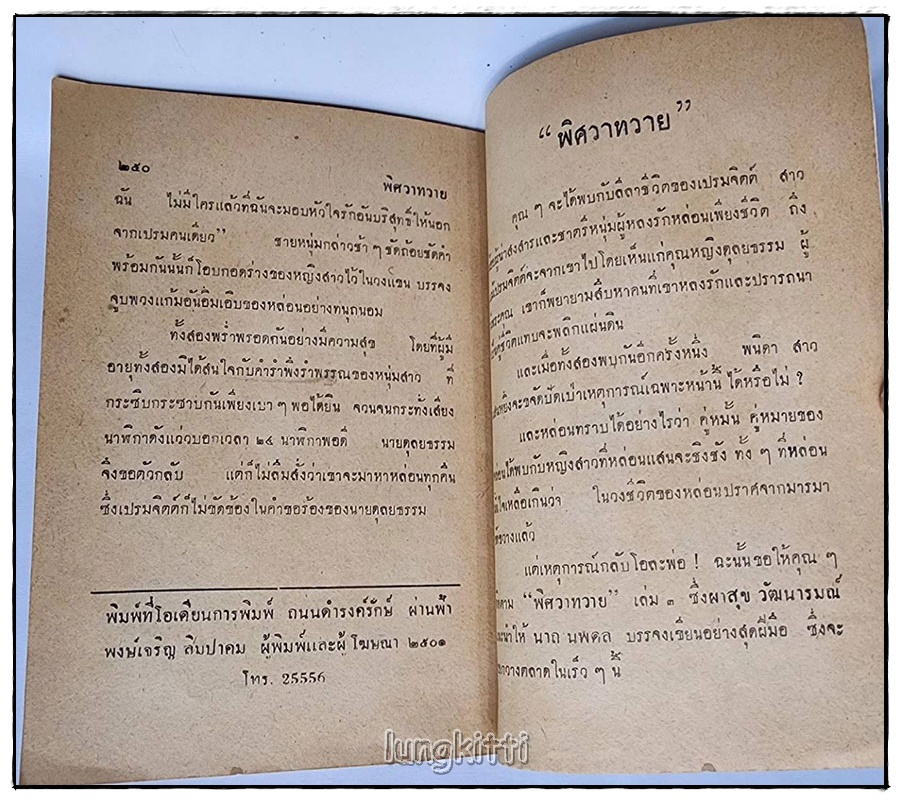 ๒๕๐
พิศวาทวาย
ฉัน ไม่มีใครแล้วที่ฉันจะมอบหัวใจรักอันบริสุทธิ์ให้นอก
จากเปรมคนเดียว” ชายหนุ่มกล่าวช้า ๆ ชัดถ้อยชัดคำ
พร้อมกันนั้นก็โอบกอดร่างของหญิงสาวไว้ในวงแขน บรรจง
จูบพวงแก้มอันอิ่มเอิบของหล่อนอย่างทนุถนอม
ทั้งสองพร่ำพรอดกันอย่างมีความสุข โดยที่ผู้มี
อายุทั้งสองมิได้สนใจกับคำรำพึงรำพรรณของหนุ่มสาว ที่
กระซิบกระซาบกันเพียงเบา ๆ พอได้ยิน จวนจนกระทั่งเสียง
นาฬิกาดังแว่วบอกเวลา ๒๔ นาฬิกาพอดี นายตุลยธรรม
จึงขอตัวกลับ แต่ก็ไม่ลืมสั่งว่าเขาจะมาหาหล่อนทุกคืน
ซึ่งเปรมจิตต์ก็ไม่ขัดข้องในคำขอร้องของนายตุลยธรรม
พิมพ์ที่โอเดียนการพิมพ์ ถนนดำรงค์รักษ์ ผ่านฟ้า
พงษ์เจริญ ลิมปาคม ผู้พิมพ์และผู้โฆษณา ๒๕๐๑
โทร. 25556
“พิศวาทวาย”
คุณ ๆ จะได้พบกับลีลาชีวิตของเปรมจิตต์ สาว
น่าสงสารและชาตรีหนุ่มผู้หลงรักหล่อนเพียงชีวิต ถึง
เปรมจิตต์จะจากเขาไปโดยเห็นแก่คุณหญิงตุลยธรรม ผู้
เขาก็พยายามสืบหาคนที่เขาหลงรักและปรารถนา
ชีวิตแทบจะพลิกแผ่นดิน
และเมื่อทั้งสองพบกันอีกครั้งหนึ่ง พนิดา สาว
จะขจัดปัดเป่าเหตุการณ์เฉพาะหน้านี้ได้หรือไม่ ?
และหล่อนทราบได้อย่างไรว่า คู่หมั้น คู่หมายของ
ได้พบกับหญิงสาวที่หล่อนแสนจะชิงชัง ทั้ง ๆ ที่หล่อน
เหลือเกินว่า ในวงชีวิตของหล่อนปราศจากมารมา
ขวางแล้ว
แต่เหตุการณ์กลับโอละพ่อ ! ฉะนั้นขอให้คุณ ๆ
“พิศวาทวาย” เล่ม ๓ ซึ่งผาสุข วัฒนารมณ์
ให้ นาถ นพดล บรรจงเขียนอย่างสุดฝีมือ ซึ่งจะ
วางตลาดในเร็ว ๆ นี้
lungkitti